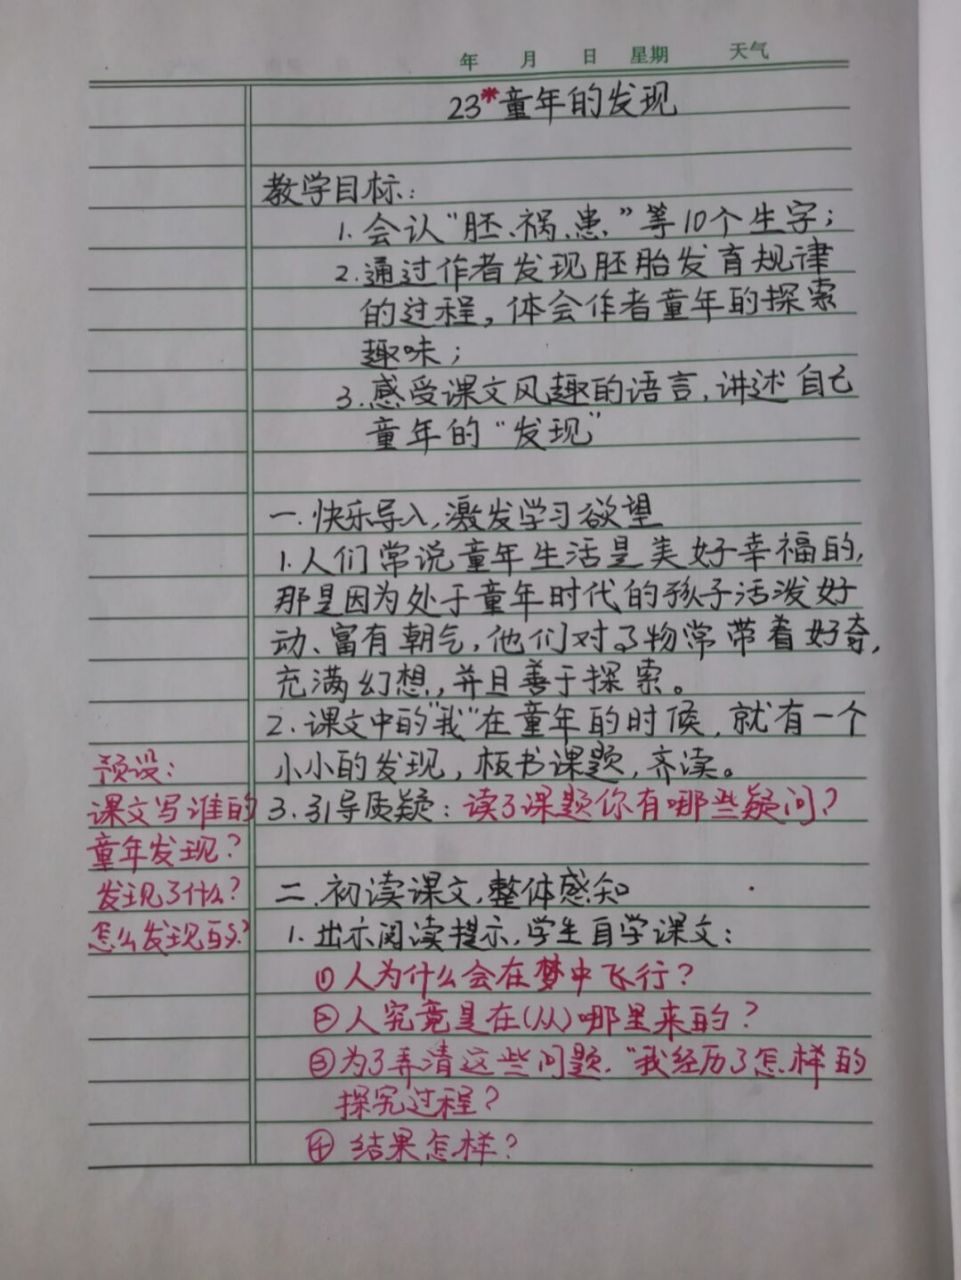 年 月 日 星期 天气
23*童年的发现
教学目标:
1.会认“胚、祸、患”等10个生字;
2.通过作者发现胚胎发育规律
的过程,体会作者童年的探索
趣味;
3.感受课文风趣的语言,讲述自己
童年的“发现”
一.快乐导入,激发学习欲望
1.人们常说童年生活是美好幸福的,
那是因为处于童年时代的孩子活泼好
动、富有朝气,他们对事物常带着好奇,
充满幻想,并且善于探索。
2.课文中的“我”在童年的时候,就有一个
小小的发现,板书课题,齐读。
3.引导质疑:读了课题你有哪些疑问?
预设:
课文写谁的
童年发现?
发现了什么?
怎么发现的?
二.初读课文,整体感知
1.出示阅读提示,学生自学课文:
①人为什么会在梦中飞行?
②人究竟是在(从)哪里来的?
③为了弄清这些问题,“我经历了怎样的
探究过程?
④结果怎样?